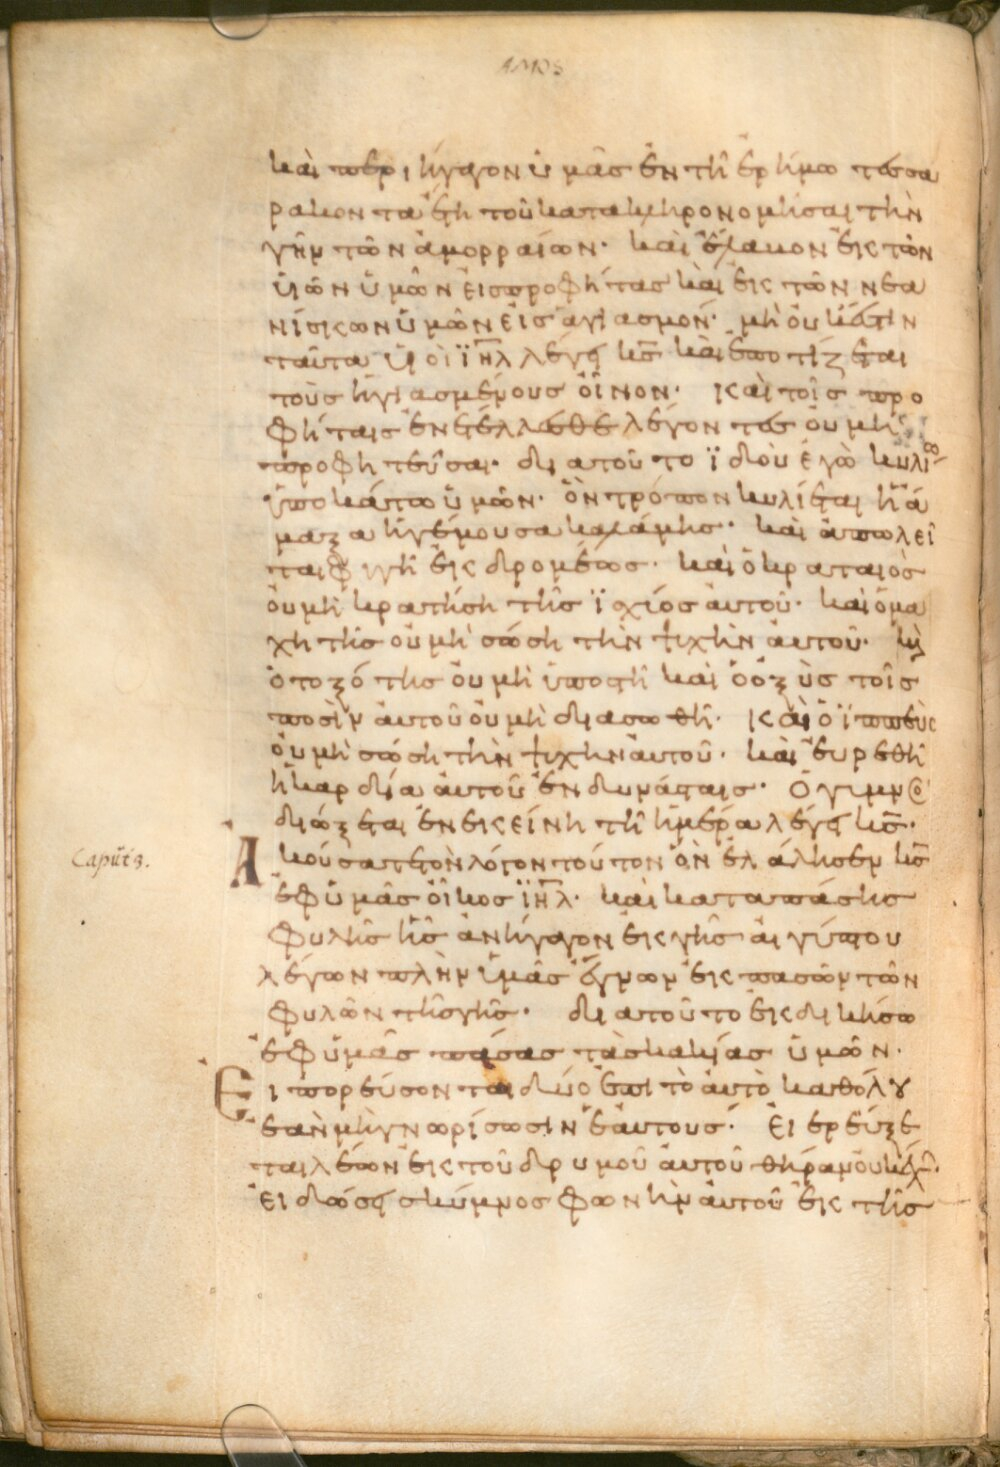 AMOS
και περιήγαγον ὑμᾶς ἐν τῆ ἐρήμω τέσσα
ράκοντα ἔτη τοῦ κατακληρονομῆσαι τὴν
γῆν τῶν ἀμορραίων· καὶ ἔλακον ἐις τῶν
ὑιῶν ὑμῶν ἐις προφήτας καὶ ἐις τῶν νεα
νίσκων ὑμῶν ἐις ἁγιασμόν· μὴ ὀυκέστιν
ταῦτα ὑιοὶ ϊηλ λέγει κς καὶ ἐποτίζεται
τοὺς ἡγιασμένους ὀῖνον· καὶ τοῖς προ
φήταις ἐνετέλλεσθε λέγοντες ὀυ μὴ
προφητεῦσαι· διατοῦτο ϊδιοὺ ἐγὼ κυλίω
ὑποκάτω ὑμῶν· ὃν τρόπον κυλίεται ἡ ἅ
μαξα ἡ γέμουσα καλάμης· καὶ ἀπωλεῖ
ται φυγὴ ἐις δρομέως· καὶ ὁ κραταιὸς
ὀυ μὴ κρατήση τῆς ϊσχύος ἀυτοῦ· καὶ ὁ μα
χητὴς ὀυ μὴ σώση τὴν ψυχὴν ἀυτοῦ· κὶ
ὁ τοξότης ὀυ μὴ ὑποστῆ καὶ ὁ ὀξὺς τοῖς
ποσὶν ἀυτοῦ ὀυ μὴ διασωθῆ· καὶ ὁ ϊππεὺς
ὀυ μὴ σώση τὴν ψυχὴν ἀυτοῦ· καὶ ἐυρεθῆ
ἡ καρδία ἀυτοῦ ἐν δυνάσταις· Ὁ γυμνὸς
διώξεται ἐν ἐκείνη τῆ ἡμέρα λέγει κς·
Caput 3.
Ἀκούσατε τὸν λόγον τούτον ὃν ἐλάλησεν κς
ἐφ ὑμᾶς ὀῖκος ϊηλ· καὶ κατα πάσης
φυλῆς ἧς ἀνήγαγον ἐκ γῆς ἀιγύπτου
λέγων πλὴν ὑμᾶς ἔγνων ἐκ πασῶν τῶν
φυλῶν τῆς γῆς· διατοῦτο ἐκδικήσω
ἐφ ὑμᾶς πάσας τὰς κακίας ὑμῶν·
Ἐι πορεύσονται δύο ἐπι τὸ ἀυτὸ καθόλου
ἐὰν μὴ γνωρίσωσιν ἑαυτους· Ἐι ερεύξε
ται λέων ἐκ τοῦ δρυμοῦ ἀυτοῦ θήραν ὀυκ ἔχ·
ἐι δώσει σκύμνος φωνὴν ἀυτοῦ ἐκ τῆς